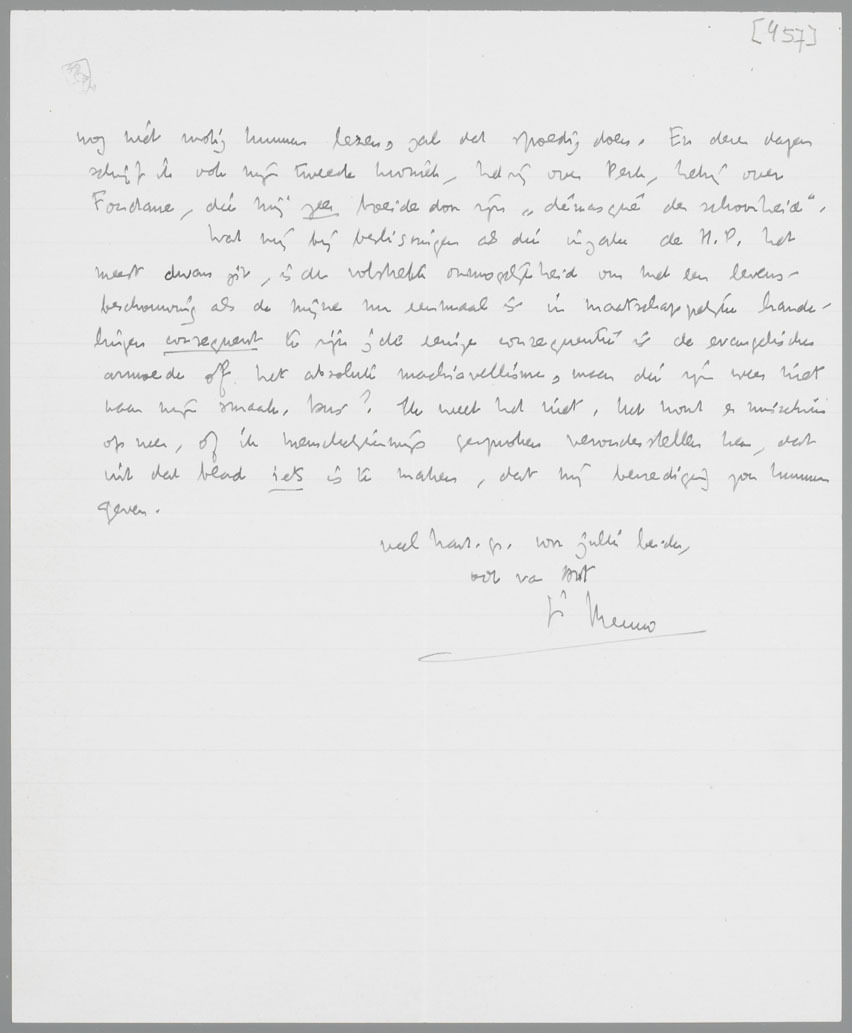 [457]
nog niet rustig kunnen lezen, zal dat spoedig doen. En dezer dagen
schrijf ik ook mijn tweede kroniek, hetzij over Perk, hetzij over
Fondane, die mij zeer boeide door zijn „démasqué der schoonheid".
Wat mij bij beslissingen als die inzake de H.P. het
meest dwars zit, is de volstrekte onmogelijkheid om met een levens-
beschouwing als de mijne nu eenmaal is in maatschappelijke hande-
lingen consequent te zijn; de eenige consequentie is de evangelische
armoede of het absolute machiavellisme, maar die zijn weer niet
naar mijn smaak, dus? Ik weet het niet, het komt er misschien
op neer, of ik menschelijkerwijs gesproken veronderstellen kan, dat
uit dat blad iets is te maken, dat mij bevrediging zou kunnen
geven.
veel hart. gr. voor jullie beiden,
ook van Ant
je Menno